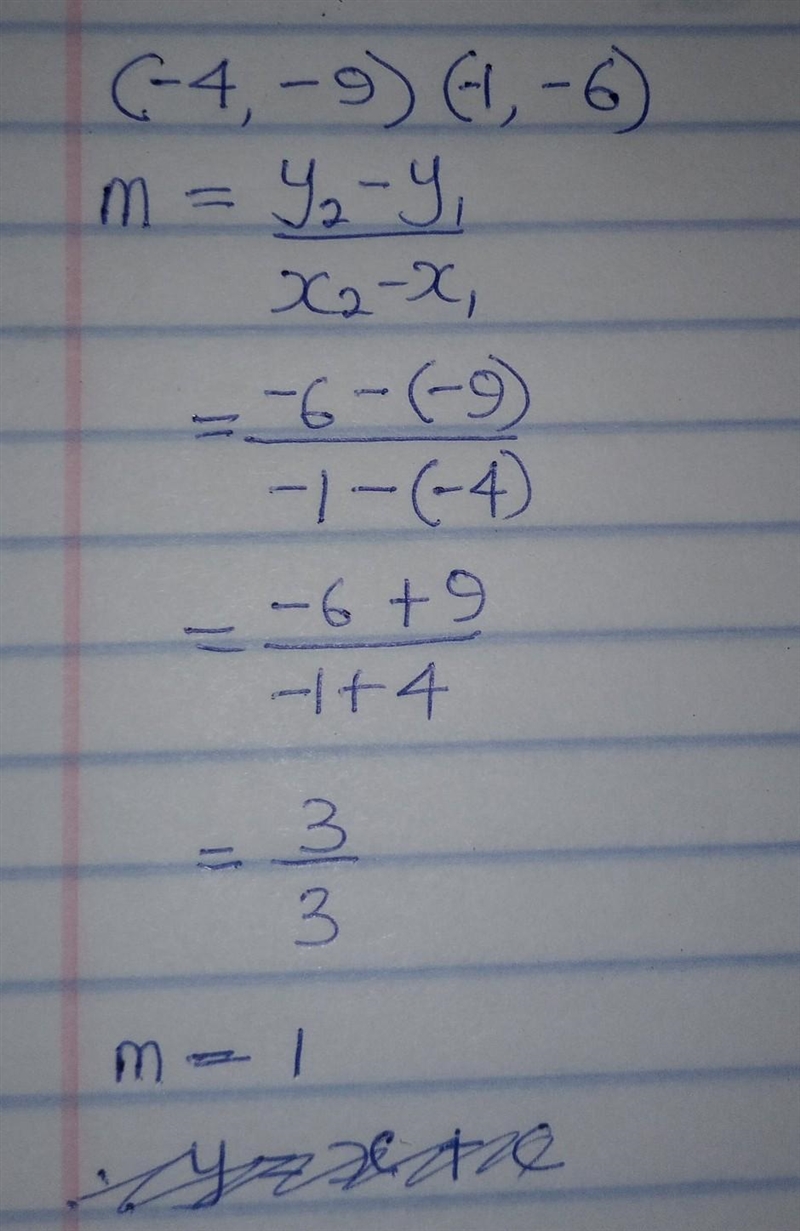 (-4, -9) (-1, -6)
m = y₂ - y₁
x₂ - x₁
= -6 - (-9)
-1 - (-4)
= -6 + 9
-1 + 4
= 3
3
m = 1
∴ y = x + c